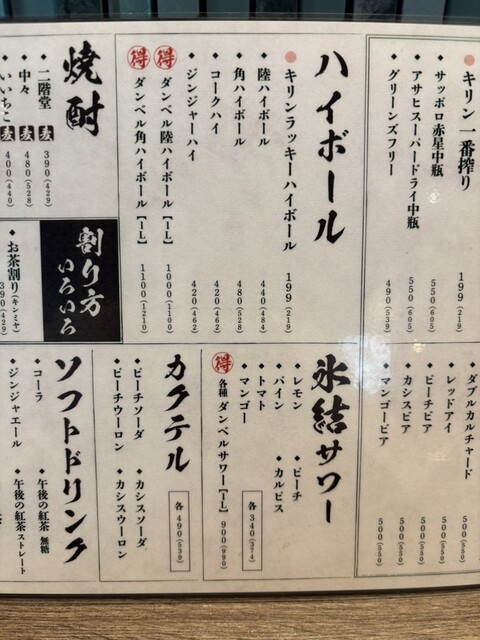 キリン 一番搾り 199(219)
サッポロ赤星中瓶 550(605)
アサヒスーパードライ中瓶 550(605)
グリーンズフリー 490(539)
ダブルカルチャード 500(550)
レッドアイ 500(550)
ピーチビア 500(550)
カシスビア 500(550)
マンゴービア 500(550)
ハイボール
キリンラッキーハイボール 199(219)
陸ハイボール 440(484)
角ハイボール 480(528)
コークハイ 420(462)
ジンジャーハイ 420(462)
得 ダンベル陸ハイボール【1L】 1000(1100)
得 ダンベル角ハイボール【1L】 1100(1210)
氷結サワー
レモン
ピーチ
パイン
カルピス
トマト
マンゴー
各 340(374)
得 各種 ダンベルサワー【1L】 900(990)
カクテル
カシスソーダ
ピーチソーダ
カシスウーロン
ピーチウーロン
各 490(539)
焼酎
二階堂 麦 390(429)
中々 麦 480(528)
いいちこ 麦 400(440)
割り方いろいろ
お茶割り(キンミヤ) 390(429)
ソフトドリンク
コーラ
午後の紅茶 無糖
ジンジャエール
午後の紅茶 ストレート